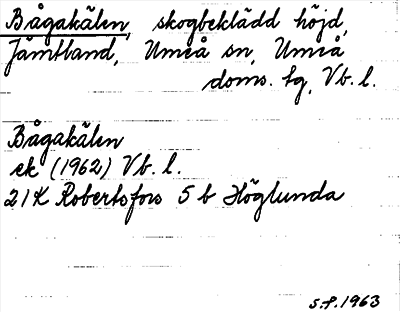 Bågakälen, skogbeklädd höjd,
Jämtland, Umeå sn, Umeå
doms. tg, Vb. l.
Bågakälen
ek (1962) Vb. l.
21K Robertsfors 5 b Höglunda
S.P. 1963